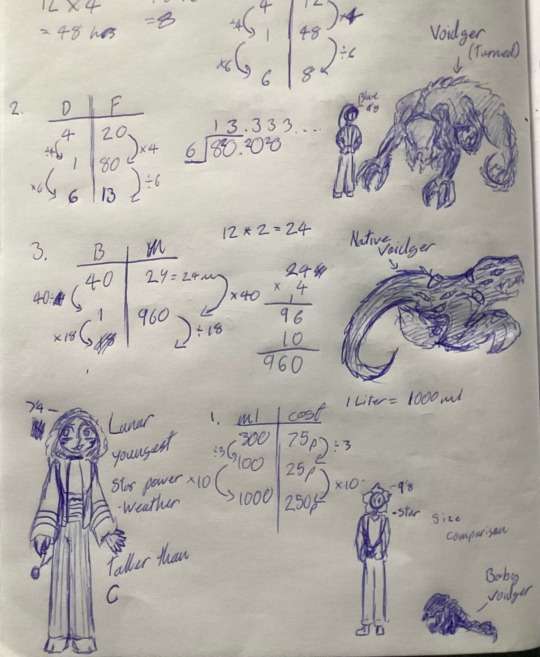 12 x 4
= 48 hrs
=8
4 12
÷4 x4
1 48
x6 ÷6
6 8
Voidger
(Turned)
2.
D F
4 20
÷4 x4
1 80
x6 ÷6
6 13
13.333...
6 80.2020
Blue
4'8
12 x 2 = 24
3.
B
40 24 = 24m
40÷ x40
1 960
x18 ÷18
24
x 4
96
10
960
Native
voidger
Lunar
youngest
Star power
·Weather
Taller than
C
1 Liter = 1000ml
1.
ml cost
300 75p
÷3 ÷3
100 25p
x10 x10
1000 250p
4'8
·star
Size
comparison
Baby
voidger